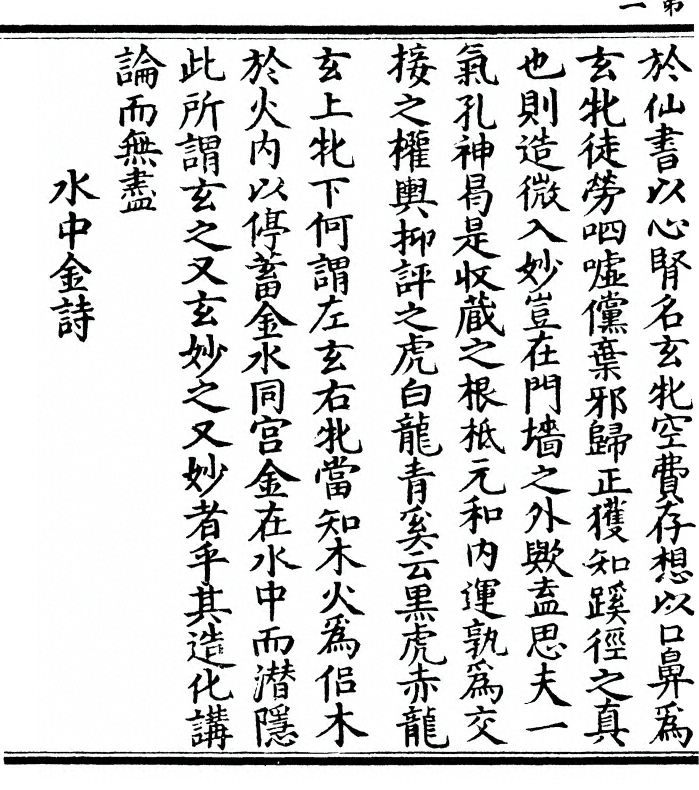 第一
於仙書以心腎名玄牝空費存想以口鼻爲
玄牝徒勞呬噓儻棄邪歸正獲知蹊徑之真
也則造微入妙豈在門墻之外歟盍思夫一
氣孔神曷是收蔵之根柢元和内運孰爲交
接之權輿抑評之虎白龍青奚云黑虎赤龍
玄上牝下何謂左玄右牝當知木火爲侣木
於火内以停蓄金水同宫金在水中而潜隱
此所謂玄之又玄妙之又妙者乎其造化講
論而無盡
水中金詩